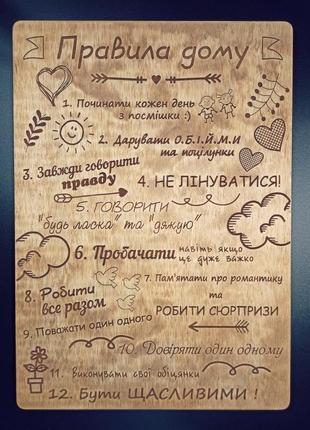 Правила дому
1. Починати кожен день
з посмішки :)
2. Дарувати О.Б.І.Й.М.И
та поцілунки
3. Завжди говорити
правду
4. НЕ ЛІНУВАТИСЯ!
5. ГОВОРИТИ
"будь ласка" та "дякую"
6. Пробачати навіть якщо
це дуже важко
7. Пам'ятати про романтику
та
РОБИТИ СЮРПРИЗИ
8. Робити
все разом
9. Поважати один одного
10. Довіряти один одному
11. виконувати свої обіцянки
12. Бути ЩАСЛИВИМИ !